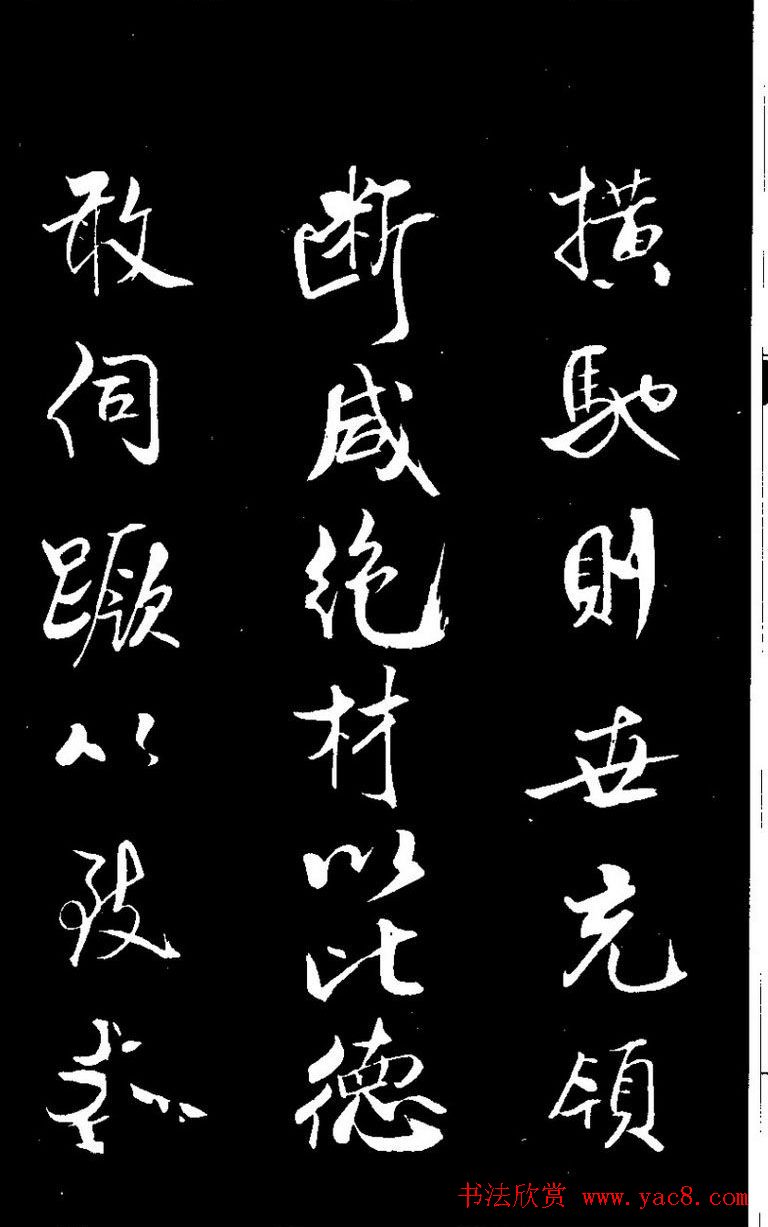 横馳則世充領
断咸絶材以比德
敢伺蹶以致
书法欣赏 www.yac8.com